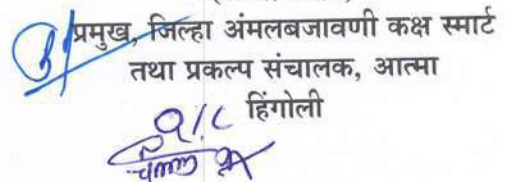 प्रमुख, जिल्हा अंमलबजावणी कक्ष स्मार्ट
तथा प्रकल्प संचालक, आत्मा
हिंगोली
O/C